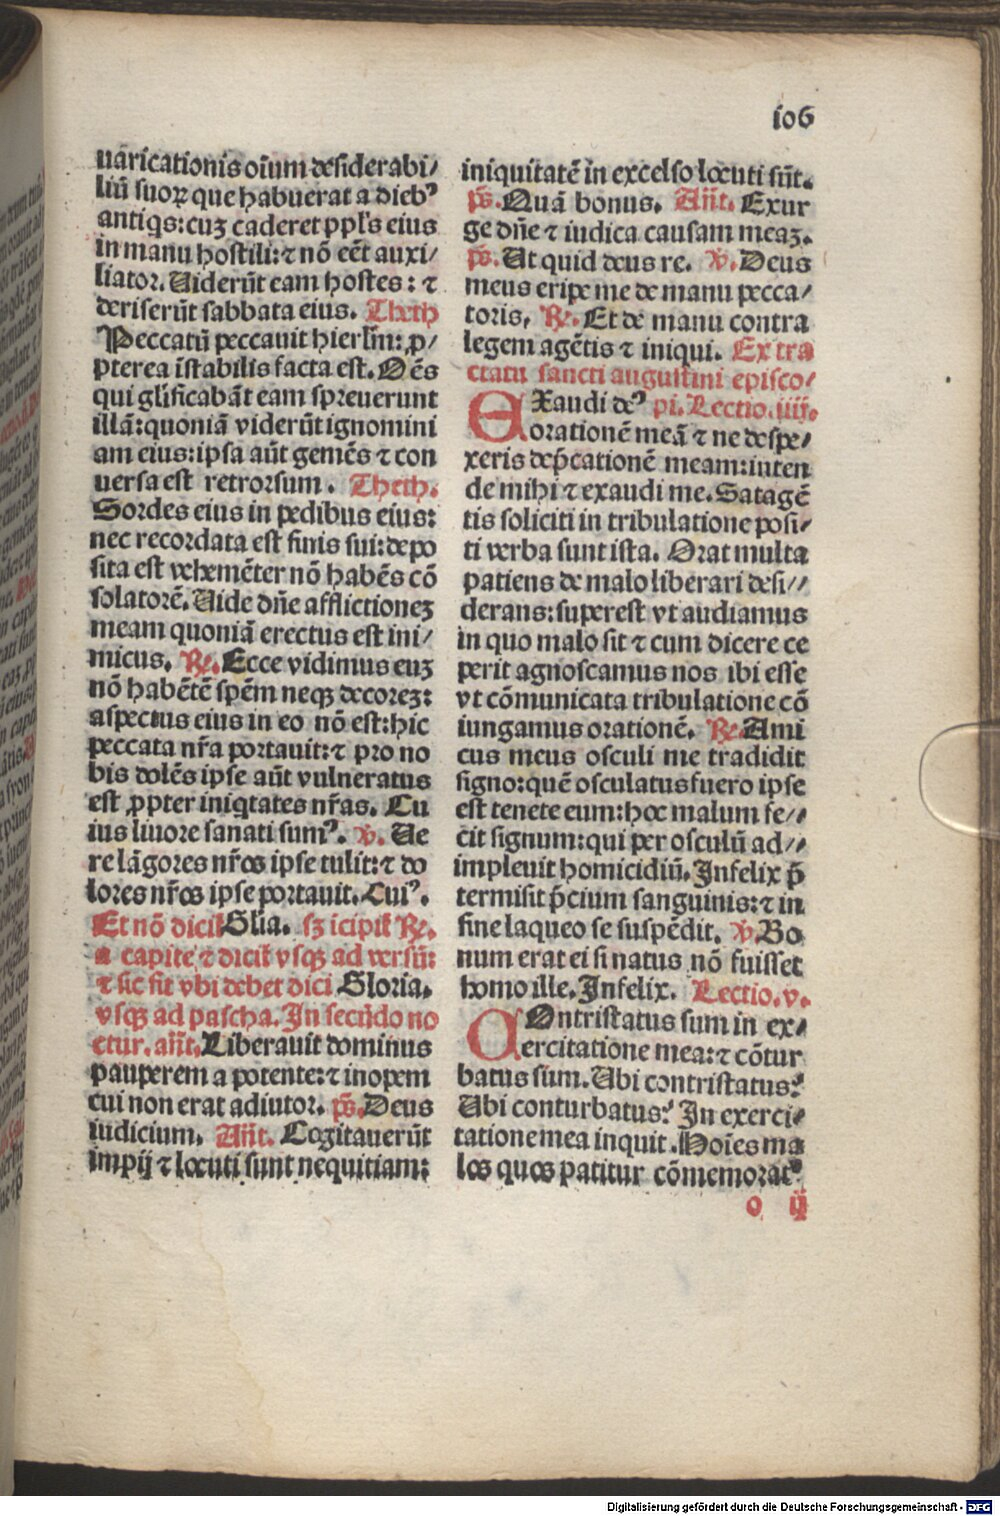 io6
uaricationis oīum desiderabi/
liū suoꝝ que habuerat a diebꝰ
antiqs: cuʒ caderet ppl's eius
in manu hostili: ⁊ nō eēt auxi/
liator. Uiderūt eam hostes: ⁊
deriserūt sabbata eius. Theth
Peccatū peccauit hierlm̄: ꝓ/
pterea īstabilis facta est. Oēs
qui glīficabāt eam spreuerunt
illā: quoniā viderūt ignomini
am eius: ipsa aūt gemēs ⁊ con
uersa est retrorsum. Theth.
Sordes eius in pedibus eius:
nec recordata est finis sui: depo
sita est vehemēter nō habēs cō
solatorē. Uide dn̄e afflictioneʒ
meam quoniā erectus est ini/
micus. ℟. Ecce vidimus euʒ
nō habētē spēm neqꝫ decoreʒ:
aspectus eius in eo nō est: hic
peccata nr̄a portauit: ⁊ pro no
bis dolēs ipse aūt vulneratus
est ꝓpter iniqtates nr̄as. Cu
ius liuore sanati sumꝰ. ℣. Ue
re lāgores nr̄os ipse tulit: ⁊ do
lores nr̄os ipse portauit. Cuiꝰ.
Et nō dicit̉ Glia. sꝫ īcipit̉ ℟.
a capite ⁊ dicit̉ vsqꝫ ad versū:
⁊ sic fit vbi debet dici Gloria.
vsqꝫ ad pascha. In secūdo no
ctur. an̄t. Liberauit dominus
pauperem a potente: ⁊ inopem
cui non erat adiutor. ps̄. Deus
iudicium. An̄t. Cogitauerūt
impij ⁊ locuti sunt nequitiam:
iniquitatē in excelso locuti sūt.
ps̄. Quā bonus. An̄t. Exur
ge dn̄e ⁊ iudica causam meaʒ.
ps̄. Ut quid deus re. ℣. Deus
meus eripe me de manu pecca/
toris. ℟. Et de manu contra
legem agētis ⁊ iniqui. Ex tra
ctatu sancti augustini episco/
EXaudi deꝰ pi. Lectio. iiij.
orationē meā ⁊ ne despe/
xeris dep̄cationē meam: inten
de mihi ⁊ exaudi me. Satagē
tis soliciti in tribulatione posi/
ti verba sunt ista. Orat multa
patiens de malo liberari desi//
derans: superest vt audiamus
in quo malo sit ⁊ cum dicere ce
perit agnoscamus nos ibi esse
vt cōmunicata tribulatione cō
iungamus orationē. ℟. Ami
cus meus osculi me tradidit
signo: quē osculatus fuero ipse
est tenete eum: hoc malum fe//
cit signum: qui per osculū ad//
impleuit homicidiū. Infelix p̄
termisit p̄cium sanguinis: ⁊ in
fine laqueo se suspēdit. ℣. Bo
num erat ei si natus nō fuisset
homo ille. Infelix. Lectio. v.
COntristatus sum in ex/
ercitatione mea: ⁊ cōtur
batus sum. Ubi contristatus?
Ubi conturbatus? In exerci/
tatione mea inquit. Hoīes ma
los quos patitur cōmemorat̉.
o ij
Digitalisierung gefördert durch die Deutsche Forschungsgemeinschaft - DFG